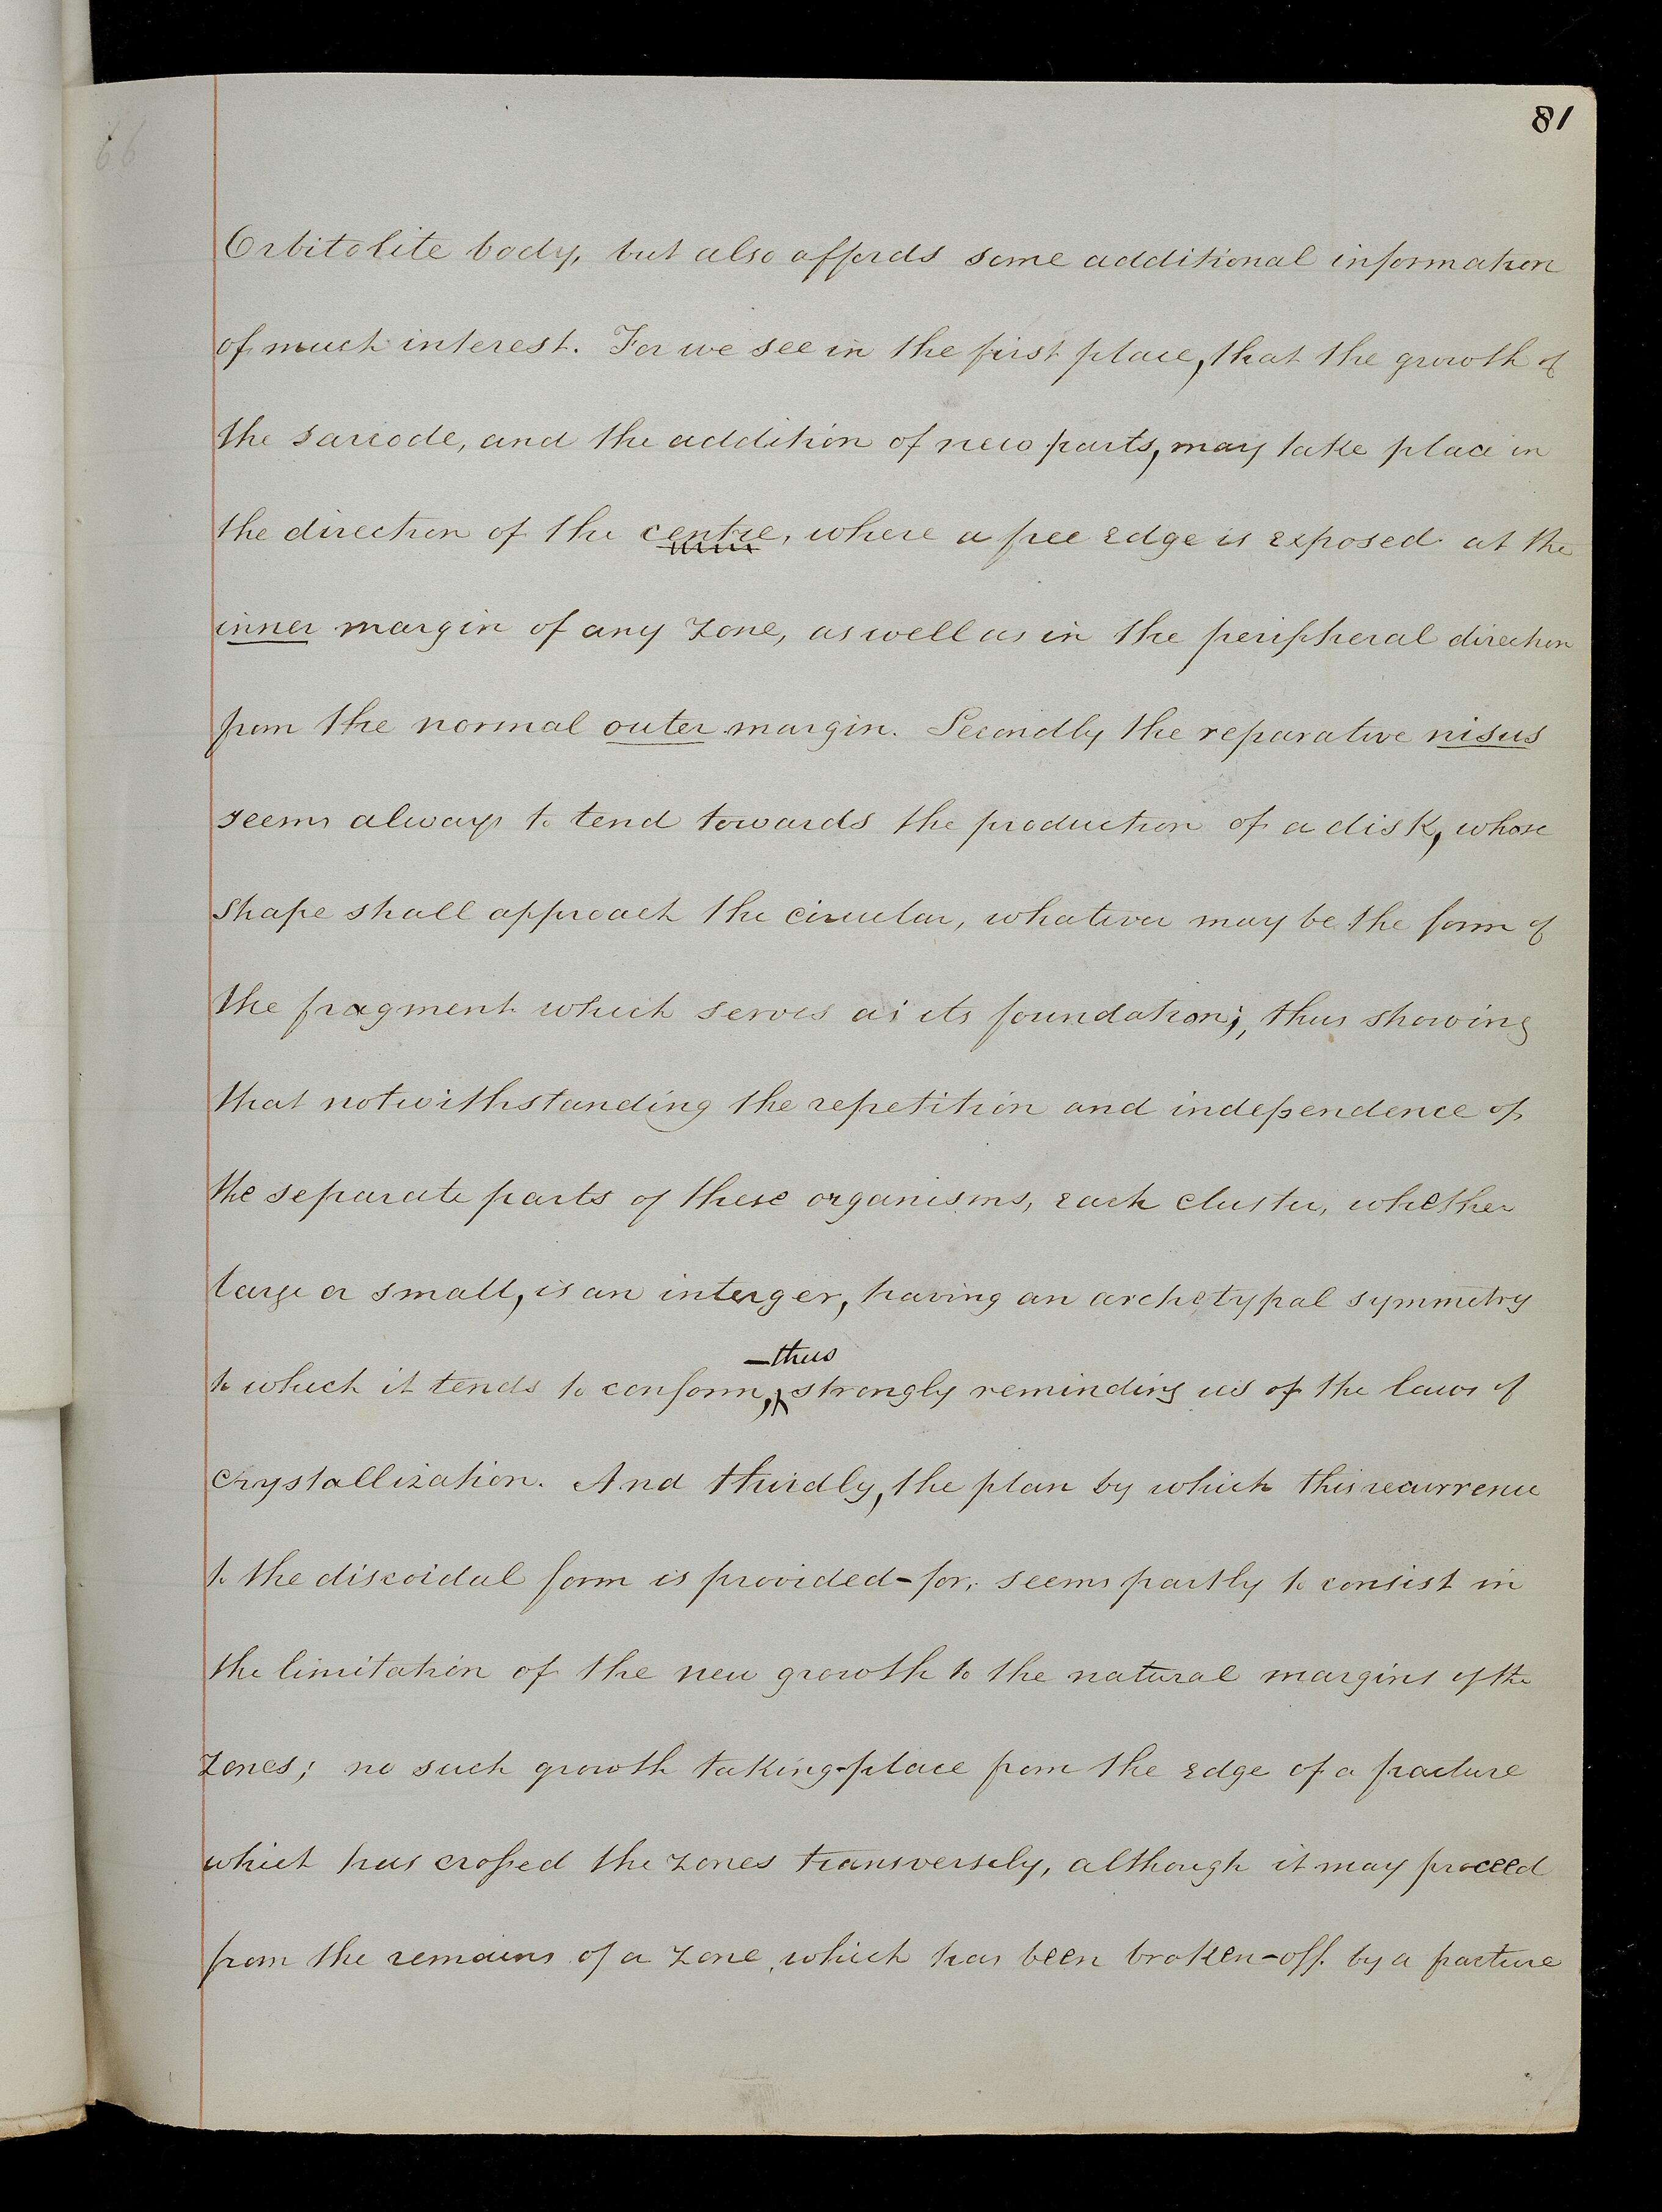 81
Orbitolite body, but also affords some additional information
of much interest. For we see in the first place, that the growth of
the sarcode, and the addition of new parts, may take place in
the direction of the centre, where a free edge is exposed at the
inner margin of any zone, as well as in the peripheral direction
from the normal outer margin. Secondly the reparative nisus
seems always to tend towards the production of a disk, whose
shape shall approach the circular, whatever may be the form of
the fragment which serves as its foundation; thus showing
that notwithstanding the repetition and independence of
the separate parts of these organisms, each cluster, whether
large or small, is an interger, having an archetypal symmetry
– thus
to which it tends to conform, strongly reminding us of the laws of
crystallization. And thirdly, the plan by which this recurrence
to the discoidal form is provided-for, seems partly to consist in
the limitation of the new growth to the natural margins of the
zones; no such growth taking-place from the edge of a fracture
which has crossed the zones transversely, although it may proceed
from the remains of a zone which has been broken-off by a fracture